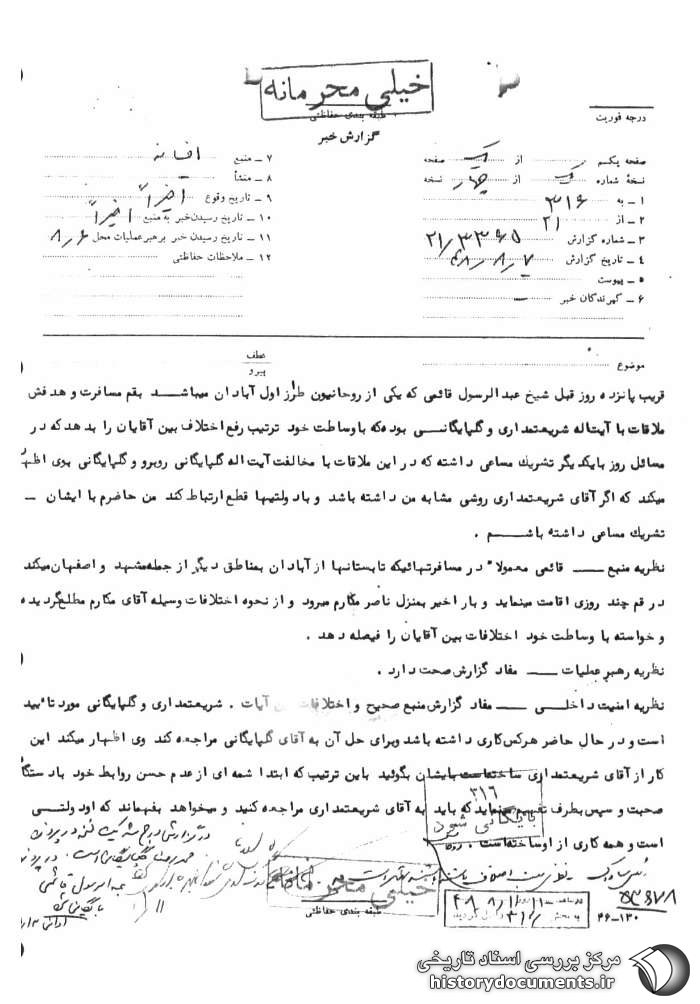 خیلی محرمانه
طبقه بندی حفاظتی
گزارش خبر
درجه فوریت
صفحه یکم از یک صفحه
نسخهٔ شماره از چهار نسخه
۱ ــ به ۳۱۶
۲ ــ از ۲۱
۳ ــ شماره گزارش
۴ ــ تاریخ گزارش ۴۸/۸/۷
۵ ــ پیوست
۶ ــ گیرندگان خبر
۷ ــ منبع افسانه
۸ ــ منشأ
۹ ــ تاریخ وقوع اخیراً
۱۰ ــ تاریخ رسیدن خبر به منبع اخیراً
۱۱ ــ تاریخ رسیدن خبر برهبر عملیات محل ۸/۶
۱۲ ــ ملاحظات حفاظتی
موضوع
عطف
پیرو
قریب پانزده روز قبل شیخ عبدالرسول قائمی که یکی از روحانیون طراز اول آبادان میباشد بقم مسافرت و هدفش
ملاقات با آیت‌اله شریعتمداری و گلپایگانی بوده‌که باوساطت خود ترتیب رفع اختلاف بین آقایان را بدهدکه در
مسائل روز بایکدیگر تشریک مساعی داشته که در این ملاقات با مخالفت آیت اله گلپایگانی روبرو و گلپایگانی بوی اظهار
میکند که اگر آقای شریعتمداری روشی مشابه من داشته باشد و باد ولتیها قطع ارتباط کند من حاضرم با ایشان ــ
تشریک مساعی داشته باشم .
نظریه منبع ــ قائمی معمولا" در مسافرتهائیکه تابستانها از آبادان بمناطق دیگر از جمله‌مشهد و اصفهان میکند
در قم چند روزی اقامت مینماید و بار اخیر بمنزل ناصر مکارم میرود و از نحوه اختلافات وسیله آقای مکارم مطلع‌گردیده
و خواسته با وساطت خود اختلافات بین آقایان را فیصله دهد .
نظریه رهبر عملیات ــ مفاد گزارش صحت دارد .
نظریه امنیت داخلی ــ مفاد گزارش منبع صحیح و اختلافات بین آیات . شریعتمداری و گلپایگانی مورد تا'یید
است و در حال حاضر هرکس کاری داشته باشد وبرای حل آن به آقای گلپایگانی مراجعه کند وی اظهار میکند این
کار از آقای شریعتمداری ساخته‌است بایشان بگوئید باین ترتیب که ابتدا شمه ای از عدم حسن روابط خود بادستگاه
صحبت و سپس بطرف تفهیم مینماید که باید به آقای شریعتمداری مراجعه کنید و میخواهد بفهماند که اود ولتی
است و همه کاری از او ساخته‌است .
۳۱۶
بایگانی شود
خیلی محرمانه
طبقه بندی حفاظتی
عبدالرسول قائمی
۴۶-۱۳۰
مرکز بررسی اسناد تاریخی
historydocuments.ir